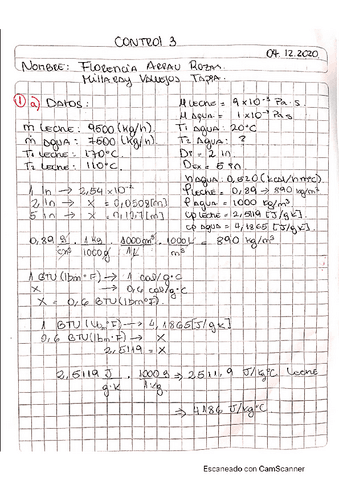 CONTROL 3
04.12.2020
NOMBRE: FLORENCIA ARRAU ROZAS.
MILLARAY VALLEJOS TAPIA.
1 a) DATOS:
ṁ LECHE: 9500 (kg/h).
ṁ AGUA: 7500 (kg/h).
T1 LECHE: 170°C.
T2 LECHE: 110°C.
μ LECHE = 9x10⁻³ Pa·s.
μ AGUA = 1 x10⁻³ Pa·s
T1 AGUA: 20°C
T2 AGUA: ?
2 in
5 in
h AGUA: 0,520 (kcal/hm°C)
ρ LECHE = 0,89 → 890 kg/m³
ρ AGUA = 1000 kg/m³
cp LECHE = 2,5119 [J/g K]
cp AGUA = 4,1865 [J/g K]
1 in → 2,54 x10⁻²
2 in → x = 0,0508 [m]
5 in → x = 0,127 [m]
0,89 g/cm³ · 1 kg/1000g · = 890 kg/m³
1 BTU (lbm°F) → 1 cal/g·°C
x → 0,6 cal/g·°C
x = 0,6 BTU (lbm°F).
1 BTU (lb°F) → 4,1865 [J/gK]
0,6 BTU (lbm°F) → x
2,5119 = x
2,5119 J/g·K · 1000g/1kg ⇒ 2511,9 J/kg°C LECHE
⇒ 4186 J/kg°C
Escaneado con CamScanner